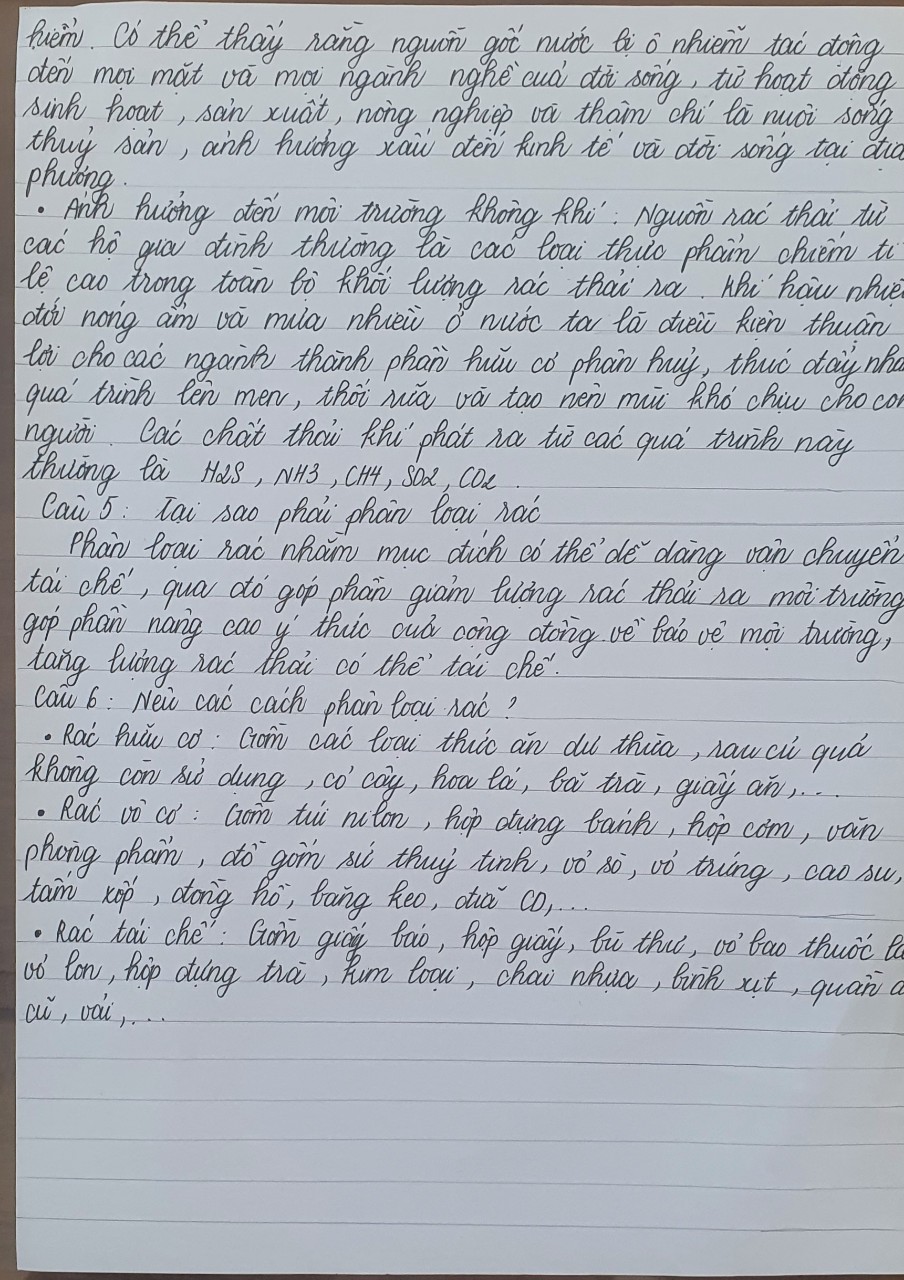 hiểm. Có thể thấy rằng nguồn gốc nước bị ô nhiễm tác động
đến mọi mặt và mọi ngành nghề của đời sống, từ hoạt động
sinh hoạt, sản xuất, nông nghiệp và thậm chí là nuôi sống
thuỷ sản, ảnh hưởng xấu đến kinh tế và đời sống tại địa
phương.
• Ảnh hưởng đến môi trường không khí: Nguồn rác thải từ
các hộ gia đình thường là các loại thực phẩm chiếm tỉ
lệ cao trong toàn bộ khối lượng rác thải ra. Khí hậu nhiệ
đới nóng ẩm và mưa nhiều ở nước ta là điều kiện thuận
lợi cho các ngành thành phần hữu cơ phân huỷ, thúc đẩy nha
quá trình lên men, thối rữa và tạo nên mùi khó chịu cho con
người. Các chất thải khí phát ra từ các quá trình này
thường là H2S, NH3, CH4, SO2, CO2.
Câu 5: Tại sao phải phân loại rác
Phân loại rác nhằm mục đích có thể dễ dàng vận chuyển
tái chế, qua đó góp phần giảm lượng rác thải ra môi trường
góp phần nâng cao ý thức của cộng đồng về bảo vệ môi trường,
tăng lượng rác thải có thể tái chế.
Câu 6: Nêu các cách phân loại rác?
• Rác hữu cơ: Gồm các loại thức ăn dư thừa, rau củ quả
không còn sử dụng, cỏ cây, hoa lá, bã trà, giấy ăn,...
• Rác vô cơ: Gồm túi nilon, hộp đựng bánh, hộp cơm, văn
phòng phẩm, đồ gốm sứ thuỷ tinh, vỏ sò, vỏ trứng, cao su,
tấm xốp, đồng hồ, băng keo, đĩa CD,...
• Rác tái chế: Gồm giấy báo, hộp giấy, bì thư, vỏ bao thuốc lá
vỏ lon, hộp đựng trà, kim loại, chai nhựa, bình xịt, quần á
cũ, vải,...